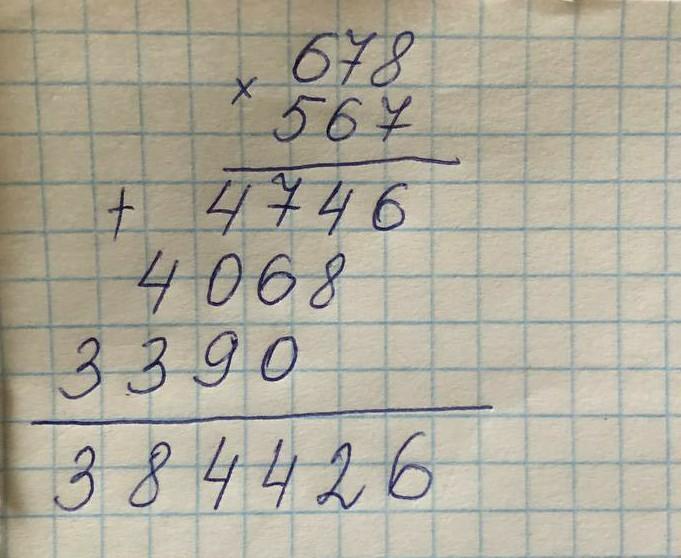 678
× 567
+ 4746
4068
3390
384426